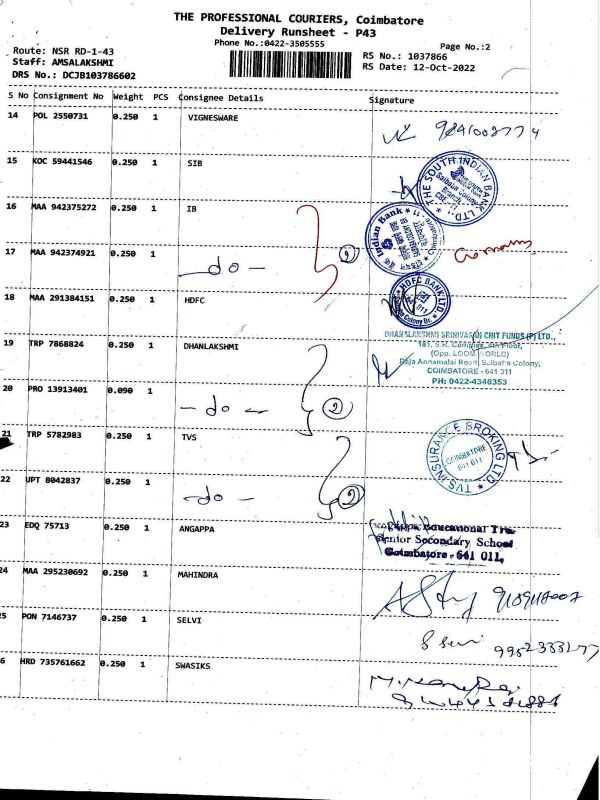 THE PROFESSIONAL COURIERS, Coimbatore
Delivery Runsheet - P43
Phone No.:0422-3505555
Page No.:2
Route: NSR RD-1-43
Staff: AMSALAKSHMI
DRS No.: DCJB103786602
RS No.: 1037866
RS Date: 12-Oct-2022
S No Consignment No Weight PCS Consignee Details Signature
14 POL 2550731 0.250 1 VIGNESWARE
15 KOC 59441546 0.250 1 SIB
THE SOUTH INDIAN BANK LTD.,
Saibaba Colony
Branch
CBE - 11
16 MAA 942375272 0.250 1 IB
Indian Bank
17 MAA 942374921 0.250 1 -do- 2
18 MAA 291384151 0.250 1 HDFC
HDFC BANK LTD
641 011
19 TRP 7868824 0.250 1 DHANLAKSHMI
DHANALAKSHMI SRINIVASAN CHIT FUNDS (P) LTD.,
181, S.K. Complex,
(Opp. LOOM WORLD)
Raja Annamalai Road, Saibaba Colony,
COIMBATORE - 641 011
PH: 0422-4346353
20 PRO 13913401 0.090 1 -do- 2
21 TRP 5782983 0.250 1 TVS
TVS INSURANCE BROKING LTD.
COIMBATORE
641 011
22 UPT 8042837 0.250 1 -do- 2
23 EDQ 75713 0.250 1 ANGAPPA
Educational
Senior Secondary School
Coimbatore - 641 011,
24 MAA 295230692 0.250 1 MAHINDRA
5 PON 7146737 0.250 1 SELVI
6 HRD 735761662 0.250 1 SWASIKS